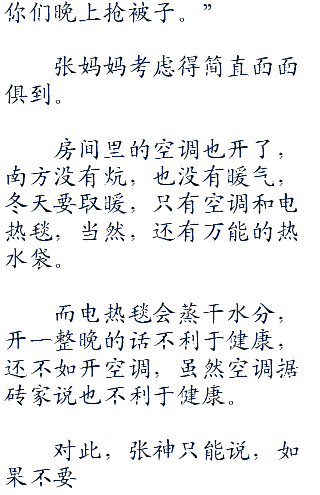 你们晚上抢被子。”
张妈妈考虑得简直面面
俱到。
房间里的空调也开了，
南方没有炕，也没有暖气，
冬天要取暖，只有空调和电
热毯，当然，还有万能的热
水袋。
而电热毯会蒸干水分，
开一整晚的话不利于健康，
还不如开空调，虽然空调据
砖家说也不利于健康。
对此，张神只能说，如
果不要